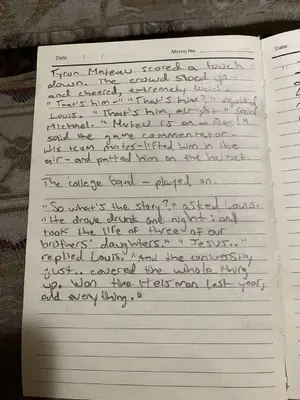 Date / / Memo No.
Date
Tyron Mateau scored a touch
down. The crowd stood up -
and cheered, extremely loud.
"That's him-" "That's him?," replied
Louis. "That's him, alright." said
Michael. "Mateu is on - fire!"
said the game commentator.
His team mates - lifted him in the
air - and patted him on the helmet.
The college band - played on.
"So what's the story?," asked Louis.
"He drove drunk one night. and
took the life of three of our
brothers' daughters." "Jesus.."
replied Louis. "And the university
just.. covered the whole thing
up. Won the Heisman last year,
and everything."